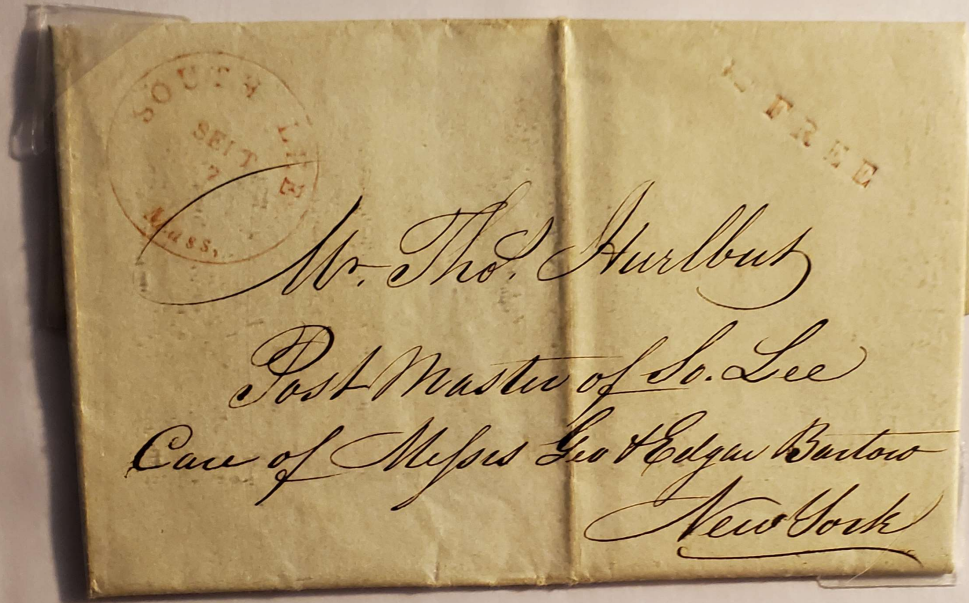 SOUTH LEE
SEPT
7
Mass.
FREE
Mr. Thos. Hurlbut
Post Master of So. Lee
Care of Messrs Geo & Edgar Bartow
New York